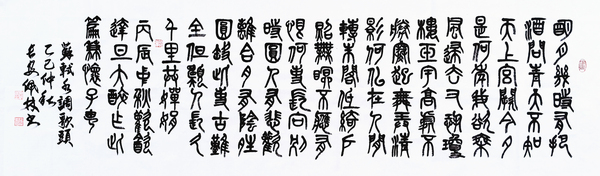 明月幾時有把
酒問青天不知
天上宮闕今夕
是何年我欲乘
風歸去又恐瓊
樓玉宇高處不
勝寒起舞弄清
影何似在人間
轉朱閣低綺戶
照無眠不應有
恨何事長向別
時圓人有悲歡
離合月有陰晴
圓缺此事古難
全但願人長久
千里共嬋娟
丙辰中秋歡飲
達旦大醉作此
篇兼懷子由
蘇軾水調歌頭
乙巳仲秋
長安